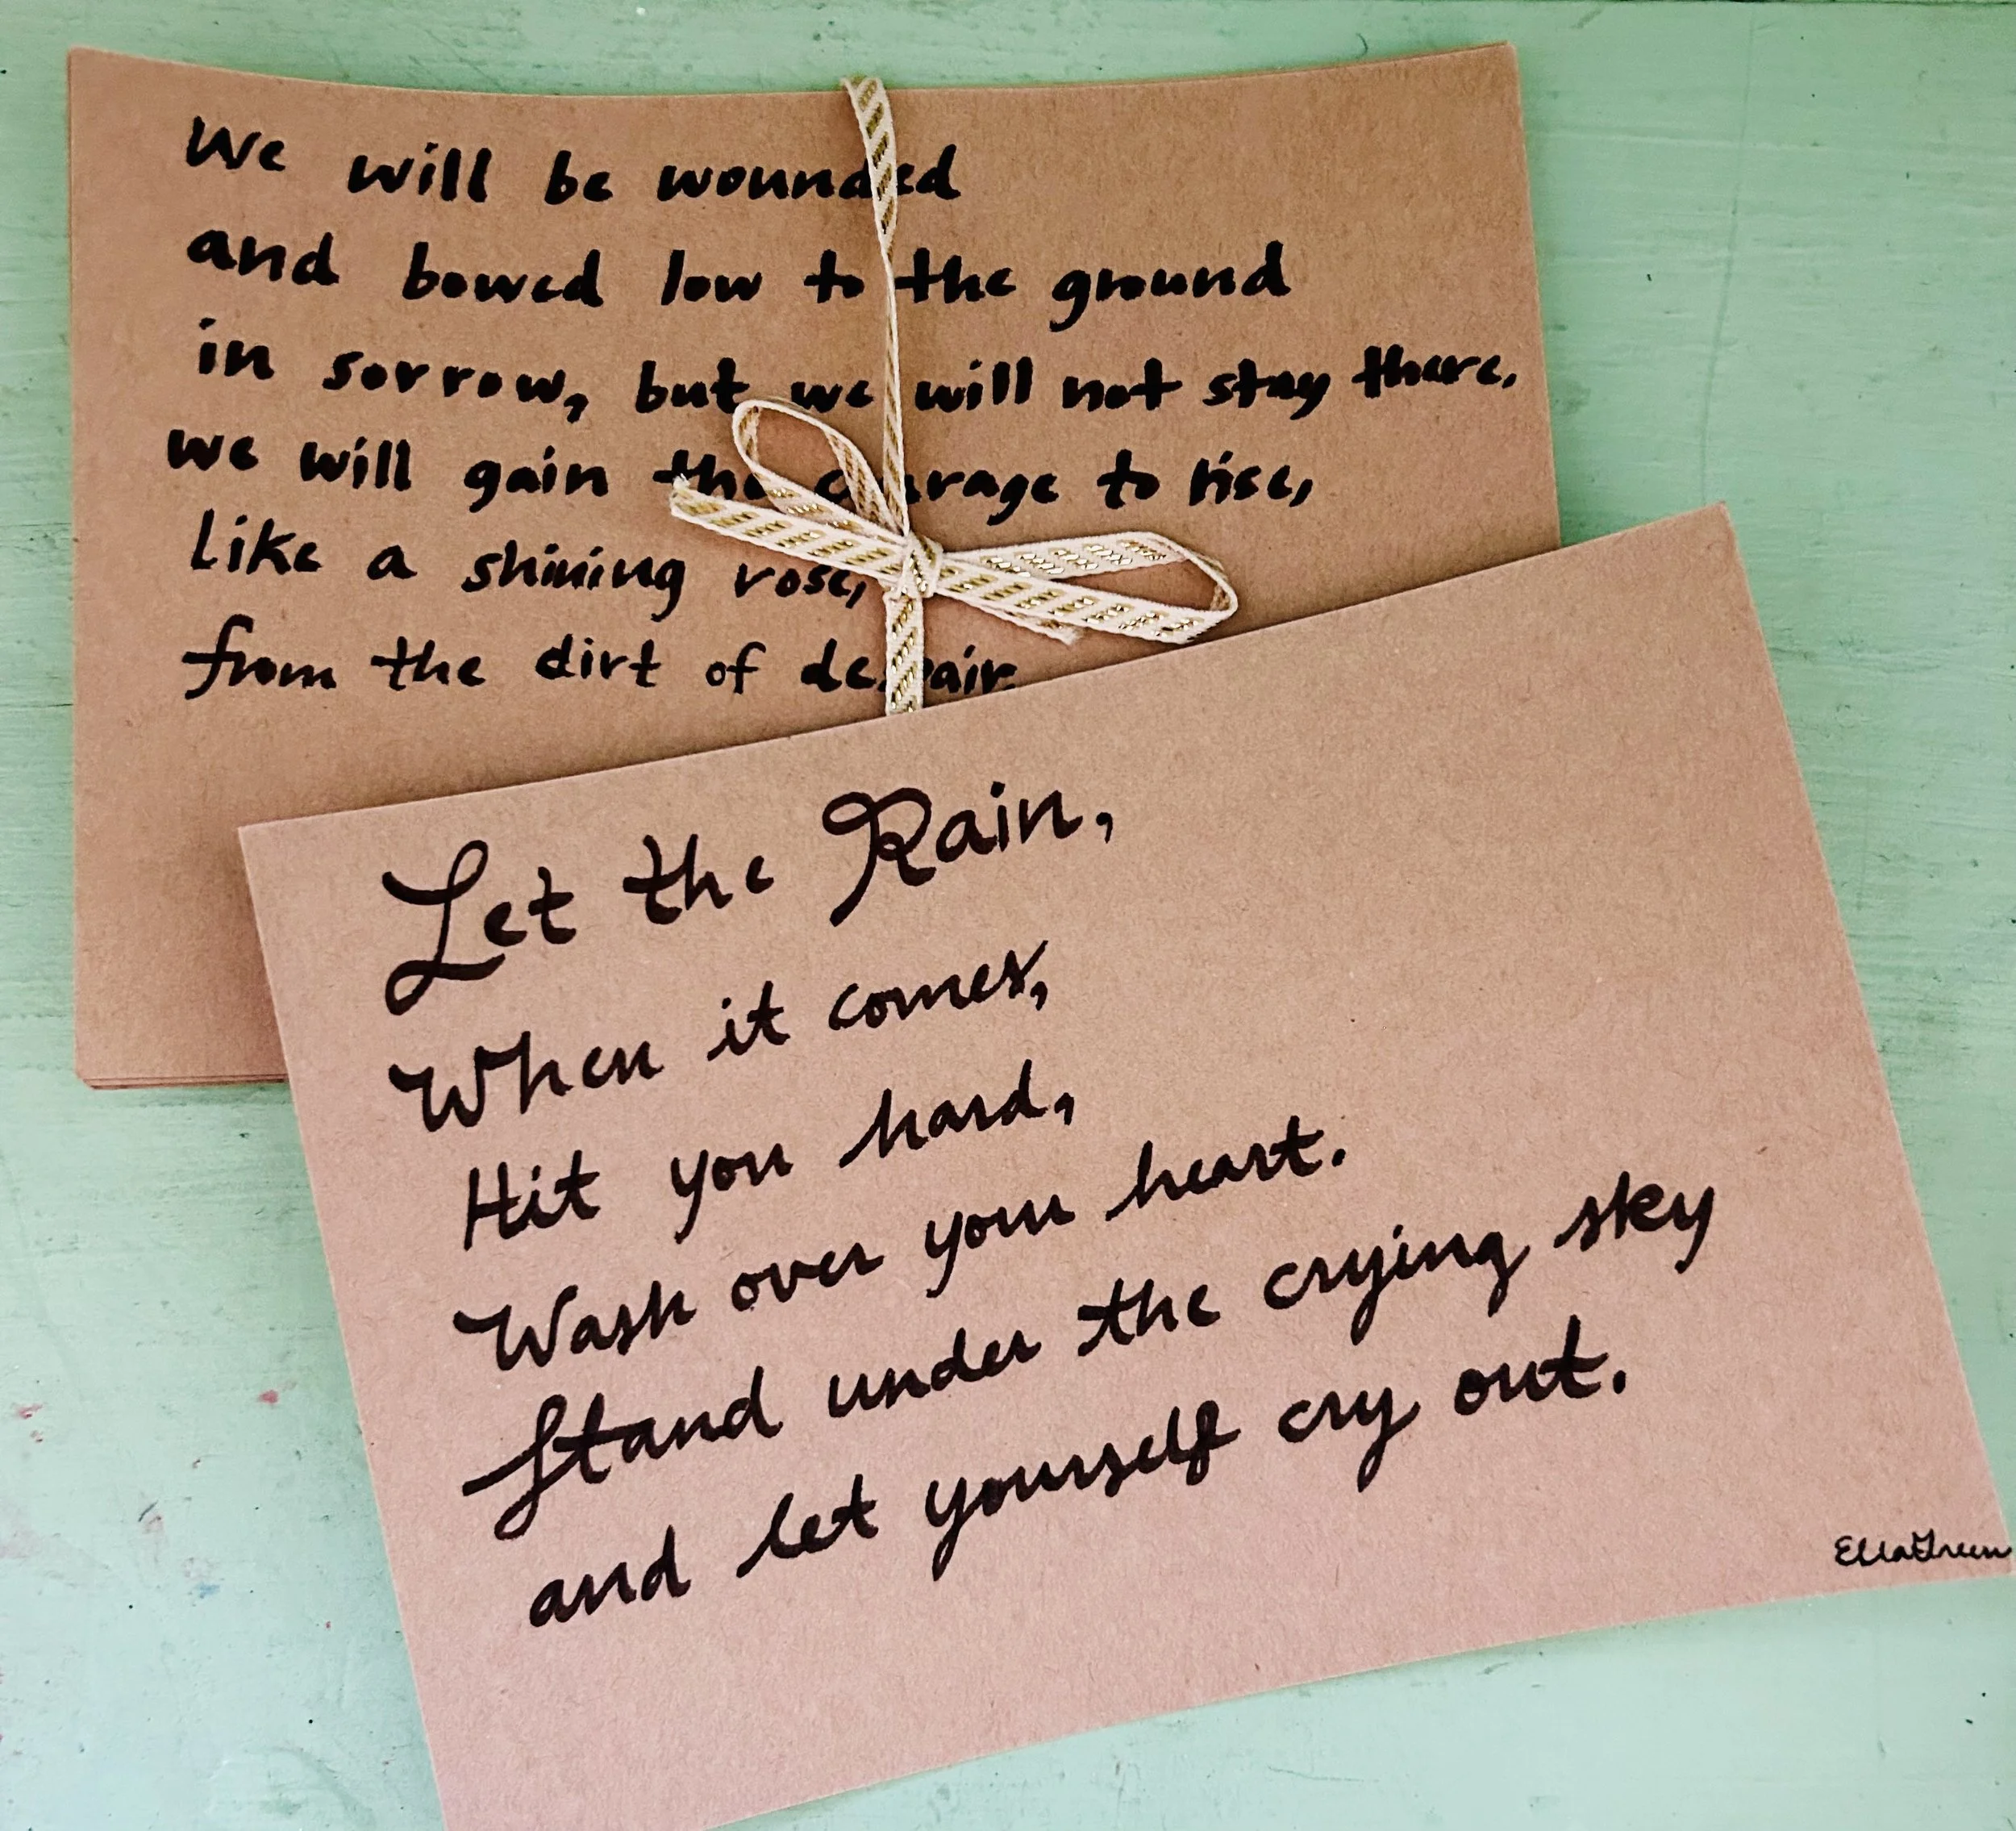 We will be wounded
and bowed low to the ground
in sorrow, but we will not stay there.
we will gain the courage to rise,
like a shining rose,
from the dirt of despair.
Let the Rain,
When it comes,
Hit you hard,
Wash over your heart.
Stand under the crying sky
and let yourself cry out.
EllaGreen